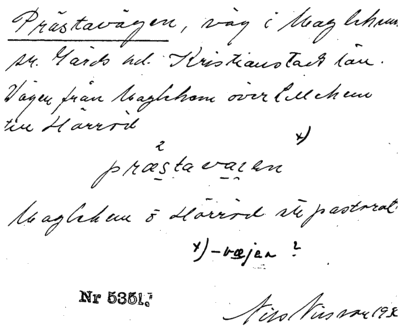 Prästavägen, väg i Maglehem
sn. Gärds hd. Kristianstads län.
Vägen från Maglehem över Lillehem
till Hörröd
præstavaien x)
Maglehem o Hörröd ett pastorat
x) -væjen ?
Nr 5351.
Nils Nilsson 19